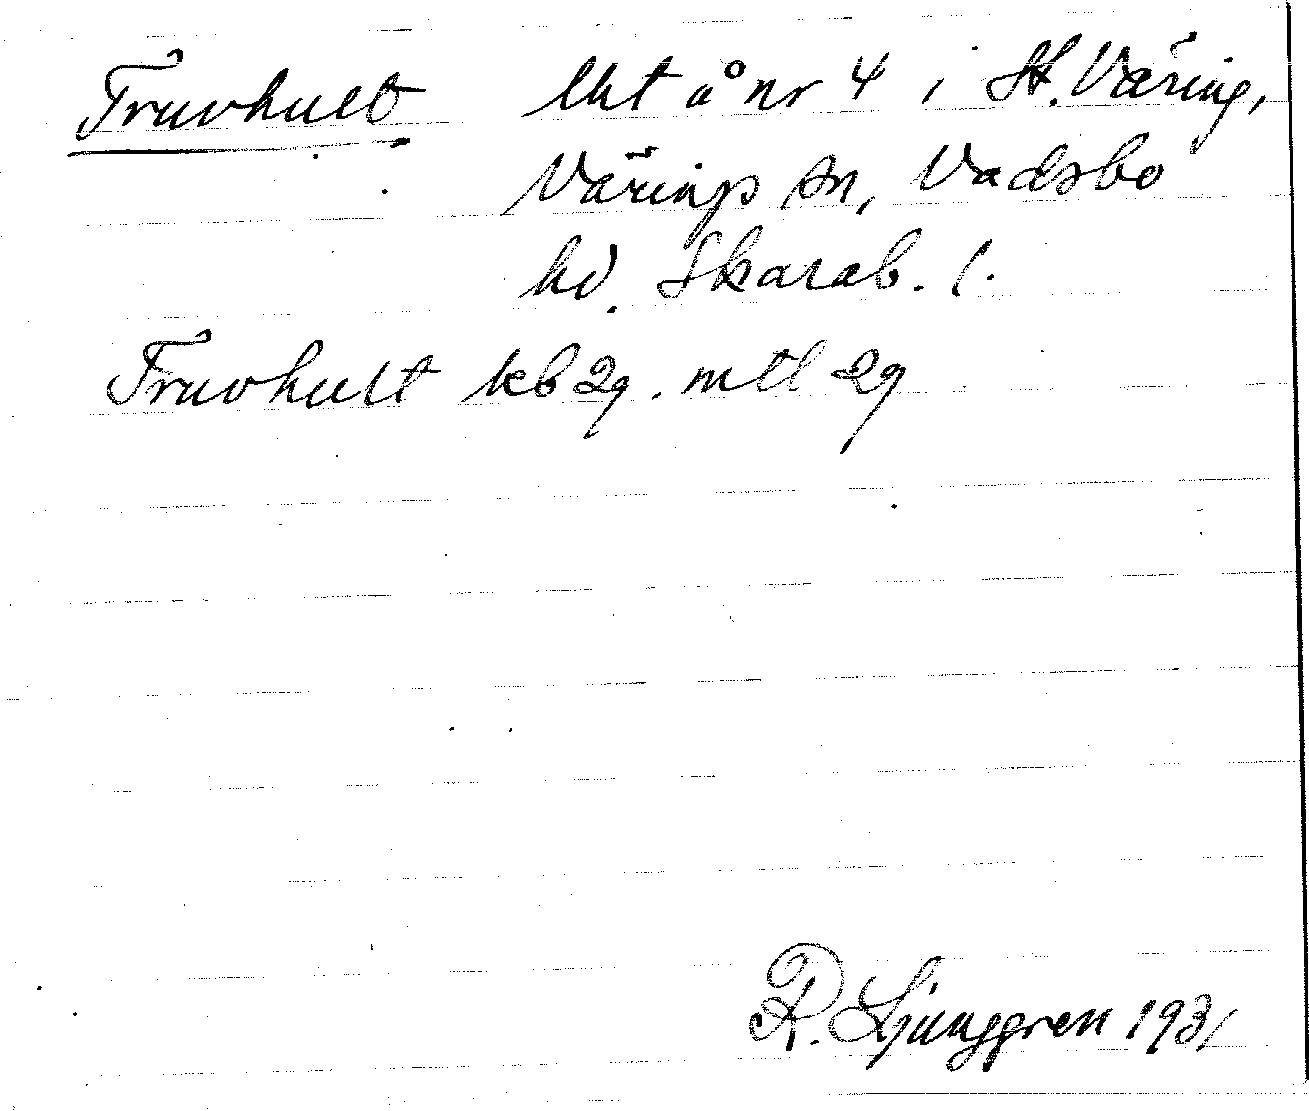 Truvhult lht å nr 4 i St. Väring,
Värings sn, Vadsbo
hd. Skarab. l.
Truvhult kb 29. mtl 29
R. Ljunggren 1931